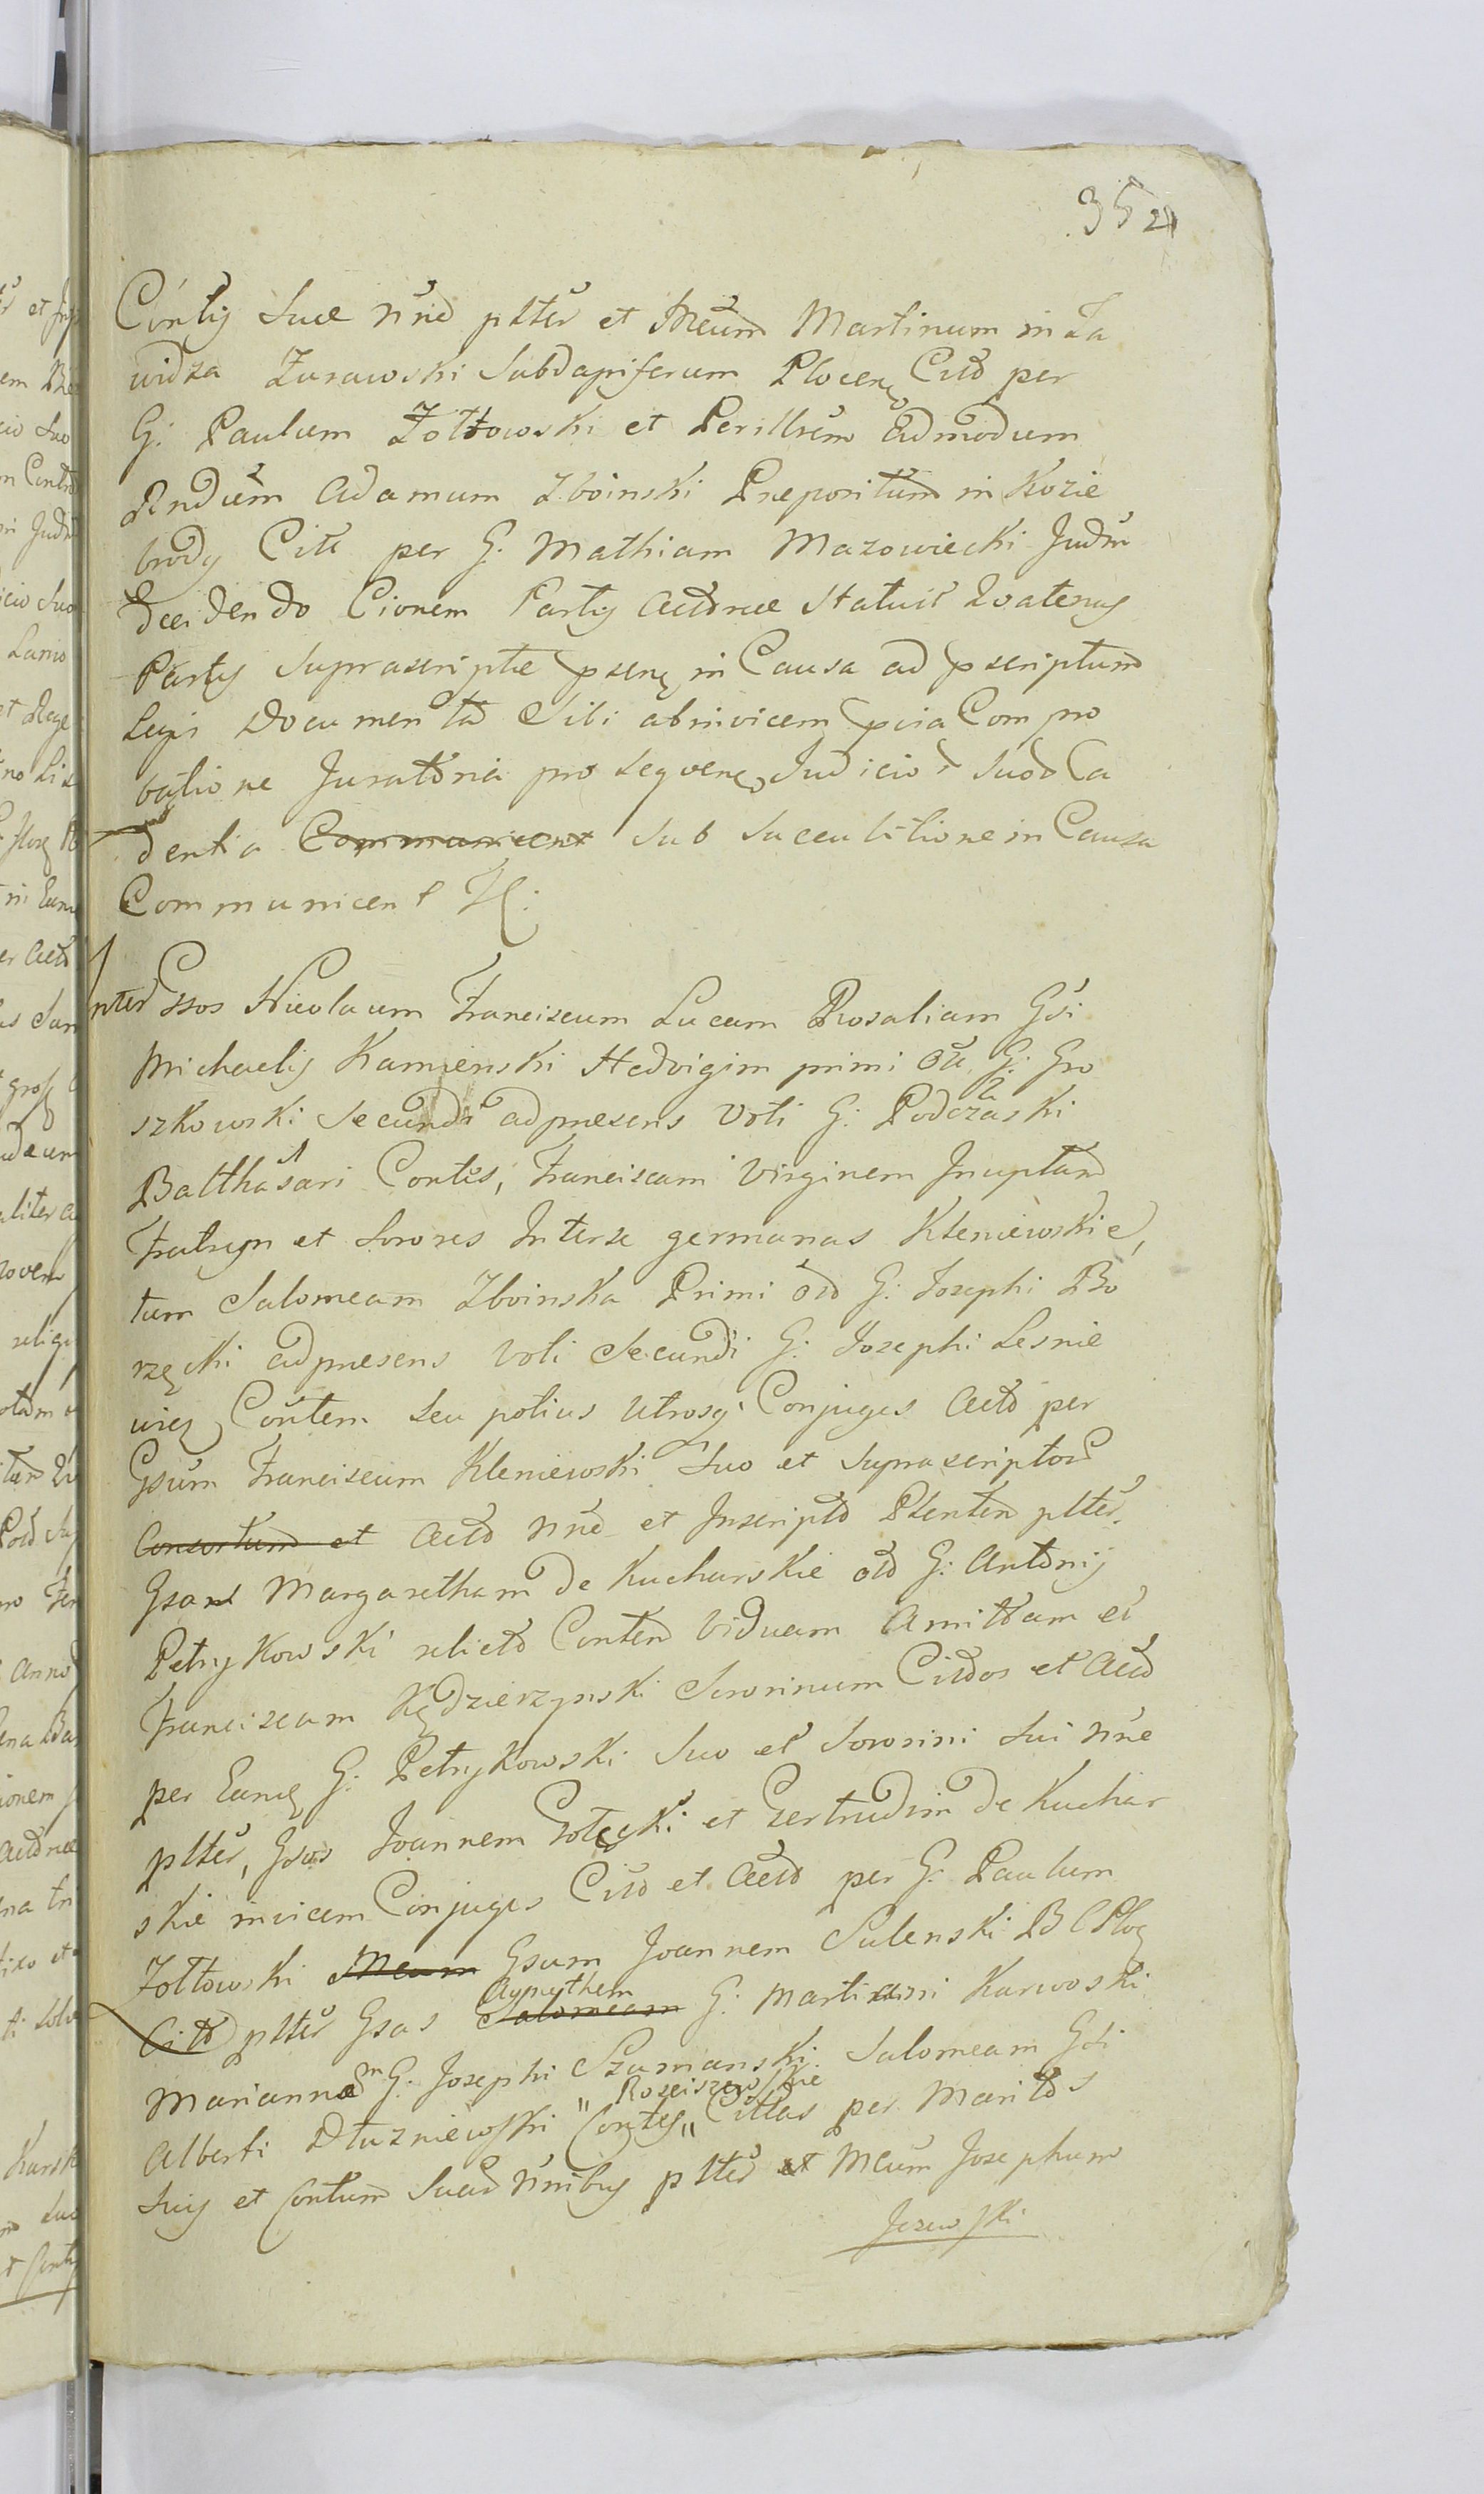 352
Contis Suae nne plter et Mcum Martinum in Za
widza Zurawski Subdapiferum Plocen Citd per
G: Paulum Zołtowski et Perillrem Admodum
Rndum Adamum Zboinski Praepositum in Kozie
brody Citt per G. Mathiam Mazowiecki Judm
decidendo Cionem Partis Actoreae Statuit Quatenus
Partes Suprascriptae psen in Causa ad pscriptum
Legis Documenta Sibi abinvicem pvia Compro
batione Juratoria pro seqven Judicior Suor Ca
dentia Communicent Sub Succubitione in Causa
Communicent
Inter Gsos Nicolaum Franciscum Lucam Rosaliam Gsi
Michaelis Kamienski Hedvigim primi oli G: Gro
szkowski Secundi adpraesens Voti G: Podczaski
Balthasari Contes, Franciscam Virginem Inuptam
Fratrem et Sorores Interse germanas Kleniewskie,
tum Salomeam Zboinska Primi old G: Josephi Bo
rzęcki adpraesens Voti Secundi G: Josephi Lesnie
wicz Contem seu potius Utrosq Conjuges Actd per
Gsum Franciscum Kleniewski Suo et Suprascriptor
Consortum et Actd nne et Inscriptd Plenten plter.
Gsam Margaretham de Kucharskie old G: Antonij
Petrykowski relictd Conten Viduam Amittam et
Franciscum Kędzierzynski Sororinum Citdos et Actd
per Eund G: Petrykowski Suo et Sororini Sui nne
plter, Gsos Joannem Gołęcki et Gertrudim de Kuchar
skie invicem Conjuges Citd et Actd per G: Paulum
Zołtowski Mcum Gsum Joannem Sulenski B C Ploc
Citd plter Gsas Salomeam Agnythem G: Martiani Karwoski
Mariannam G: Josephi Szamanski Salomeam Gsi
Alberti Dłuzniewski Contes " Rosciszewskie " Cittas per Maritos
Suis et Contum Suar nnibus plter et Mcum Josephum
Jezewski